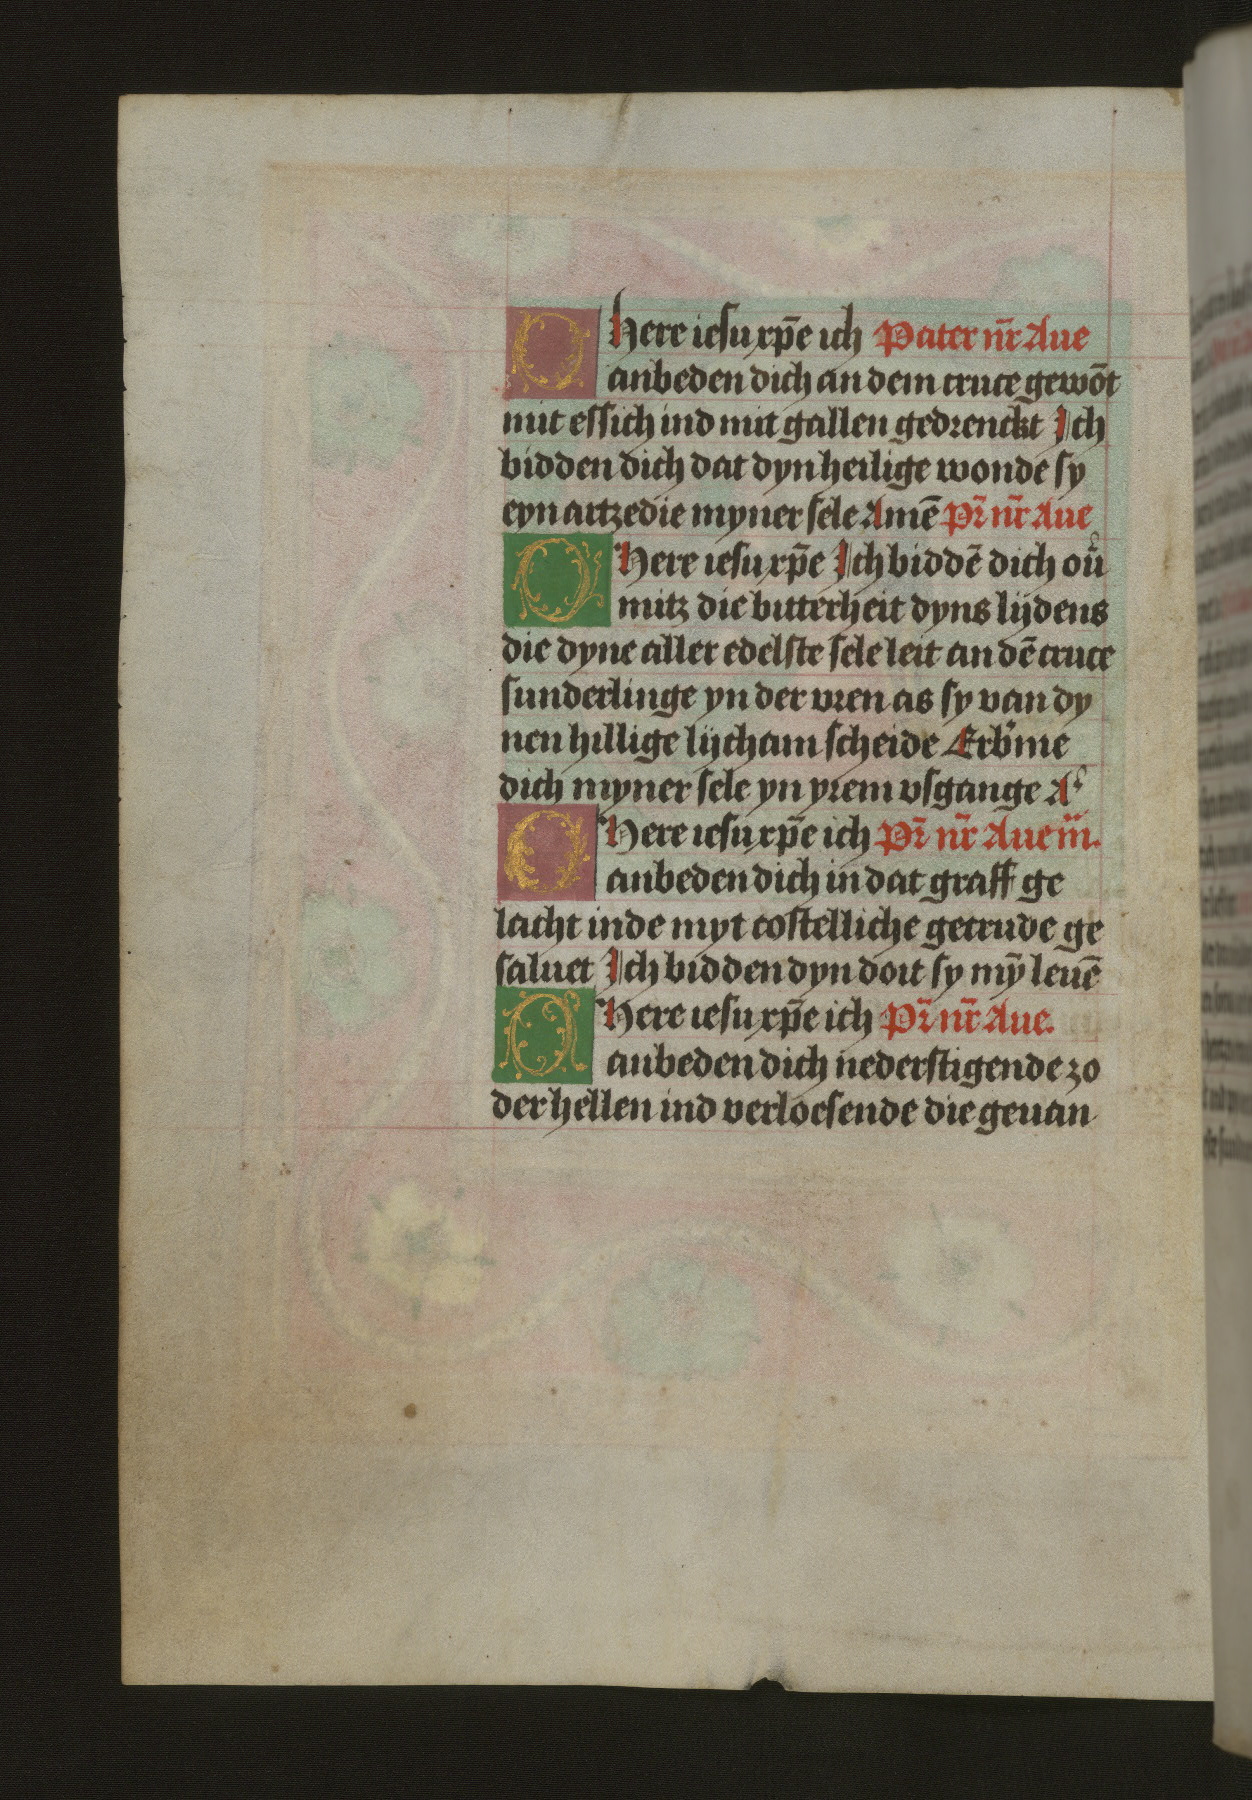 O here iesu xp̄e ich Pater nr̄ Aue
anbeden dich an dem cruce gewōt
mit essich ind mit gallen gedrenckt Ich
bidden dich dat dyn heilige wonde sy
eyn artzedie myner sele Amē Pr̄ nr̄ Aue
O here iesu xp̄e Ich biddē dich ou͛
mitz die bitterheit dyns lijdens
die dyne aller edelste sele leit an dē cruce
sunderlinge yn der vren as sy van dy
nen hillige lijcham scheide Erb͛me
dich myner sele yn yrem vsgange A
O here iesu xp̄e ich Pr̄ nr̄ Aue m̄.
anbeden dich in dat graff ge
lacht inde myt costelliche getrude ge
saluet Ich bidden dyn doit sy mȳ leuē
O here iesu xp̄e ich Pr̄ nr̄ Aue.
anbeden dich nederstigende zo
der hellen ind verloesende die geuan